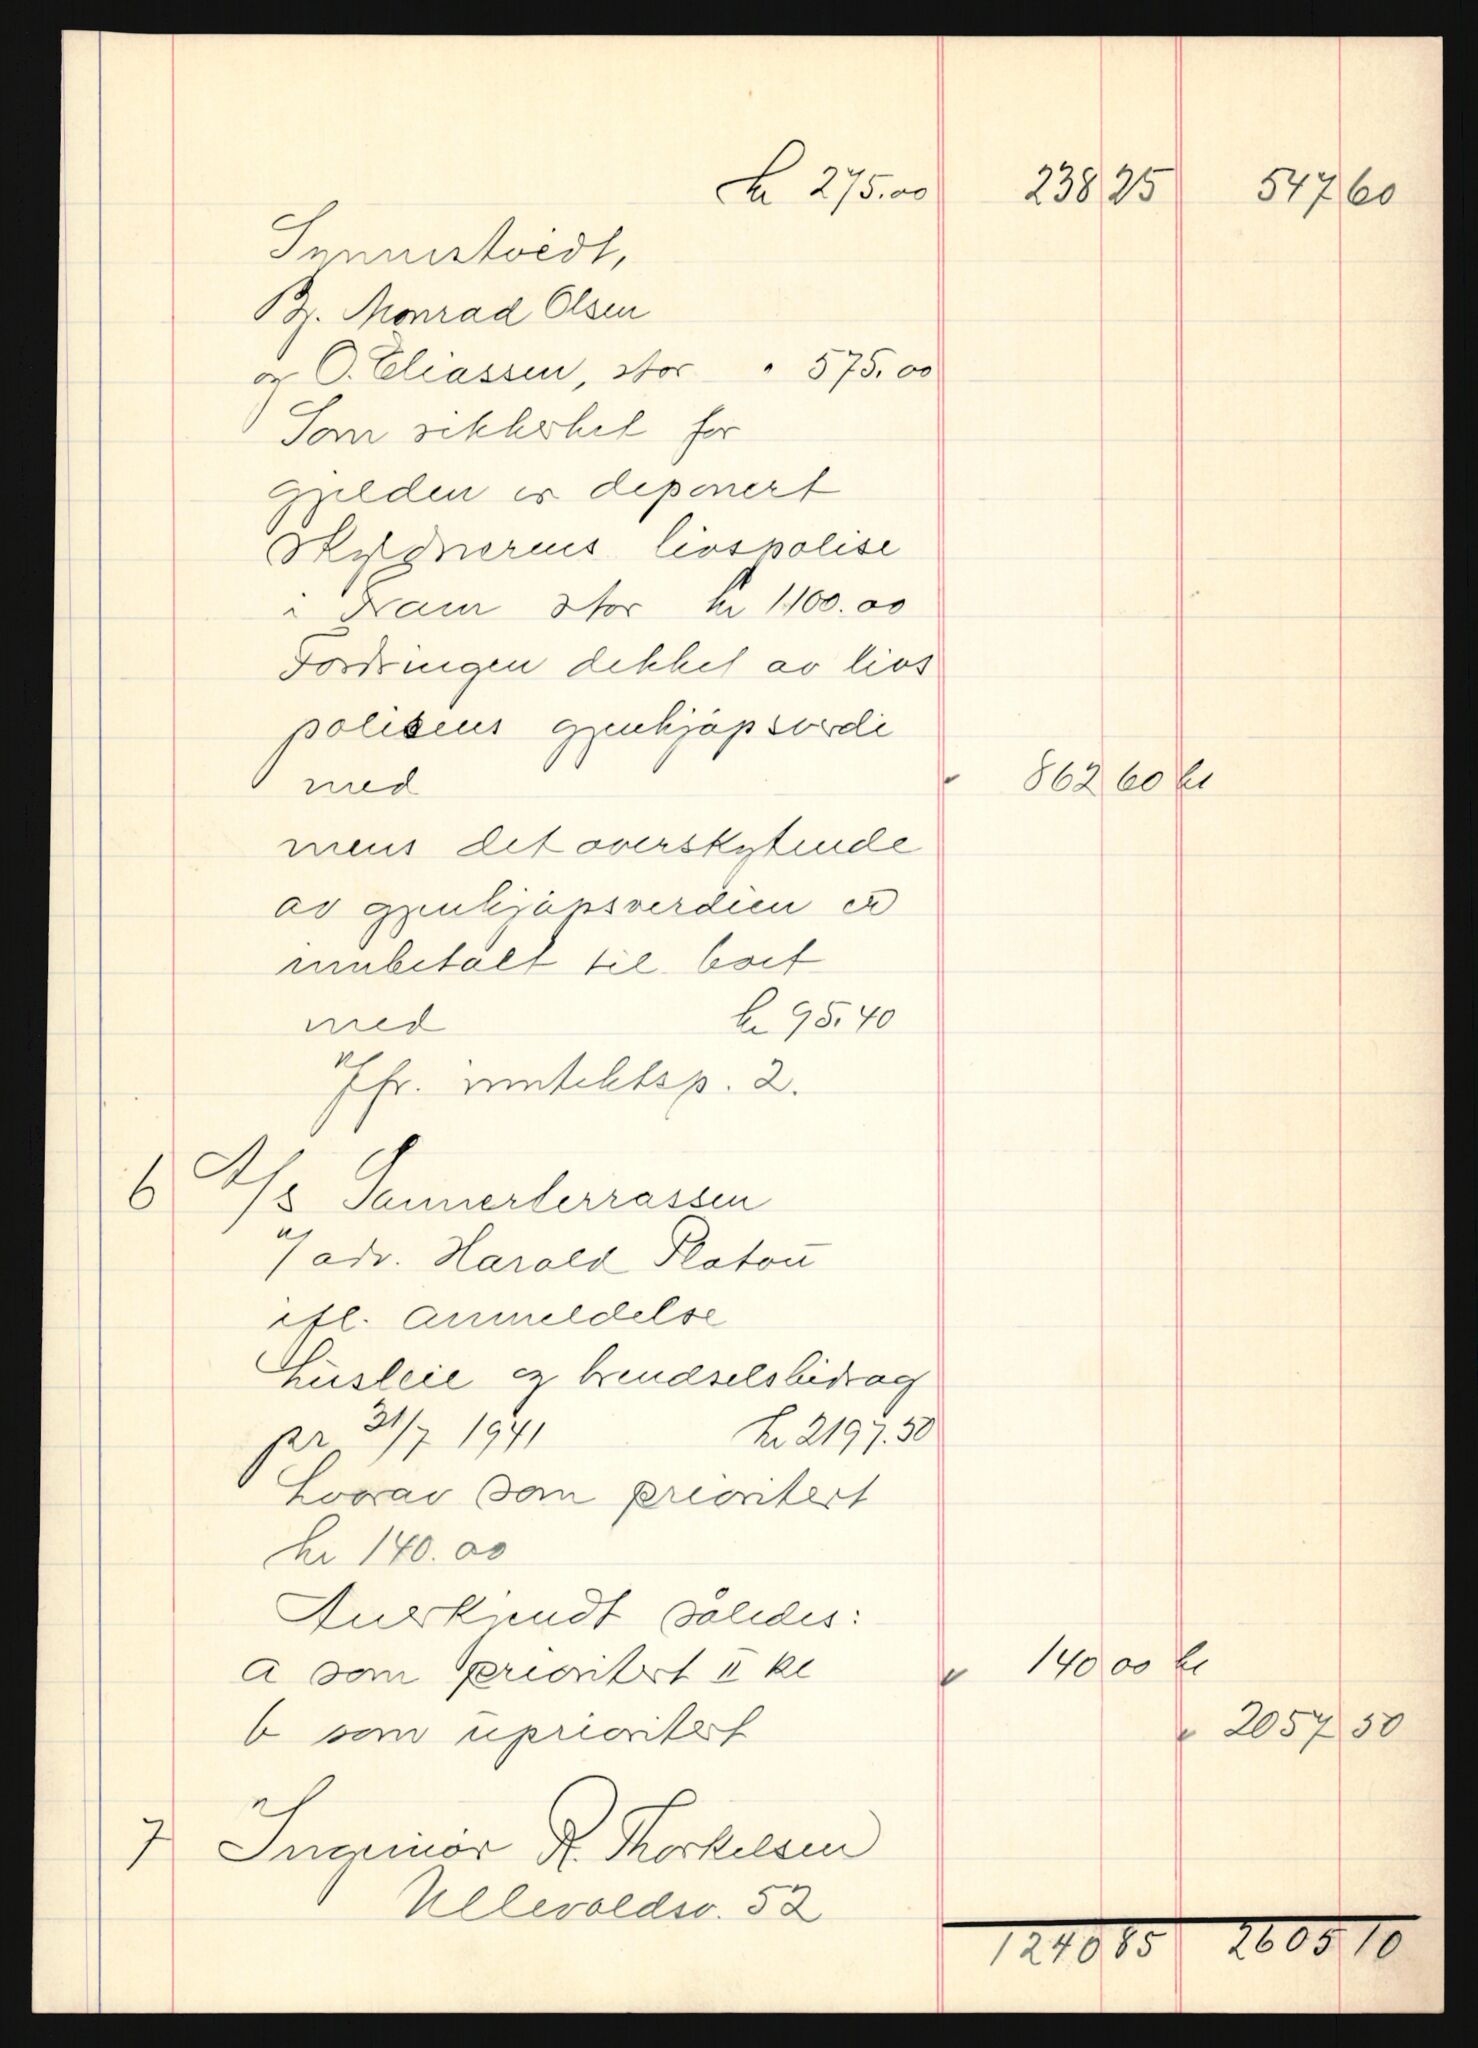 kr 275.00 238 25 547 60
Synnestvedt,
Bj. Monrad Olsen
og O. Eliassen, stor " 575.00
Som sikkerhet for
gjelden er deponert
skyldnerens livspolise
i Fram stor kr 1100.00
Fordringen dekket av livs
polisens gjenkjøpsverdi
med " 862 60 kr
mens det overskytende
av gjenkjøpsverdien er
innbetalt til boet
med kr 95.40
Jfr. inntektsp. 2.
6 A/s Sannerterrassen
v/ adv. Harald Platou
ifl. anmeldelse
husleie og brendselsbidrag
pr 31/7 1941 kr 2197.50
hvorav som prioritert
kr 140.00
Anerkjendt således:
a som prioritert II kl " 140 00 kr
b som uprioritert " 2057 50
7 Ingeniør R. Thorkelsen
Ullevoldsv. 52
1240 85 2605 10